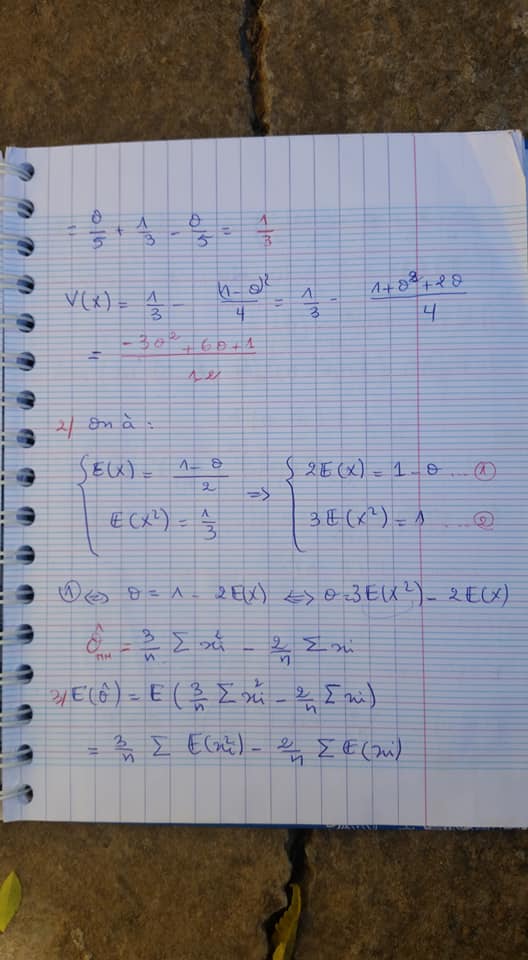 = θ/5 + 1/3 - θ/5 = 1/3
V(x) = 1/3 - (1-θ)²/4 = 1/3 - (1+θ²+2θ)/4
= (-3θ²+6θ+1)/12
2/ On à :
{ E(X) = (1-θ)/2 => { 2E(X) = 1-θ ... ①
E(X²) = 1/3 3E(X²) = 1 ... ②
① <=> θ = 1 - 2E(X) <=> θ = 3E(X²) - 2E(X)
= 3/n Σ xi² - 2/n Σ xi
3/ E(θ̂) = E(3/n Σ xi² - 2/n Σ xi)
= 3/n Σ E(xi²) - 2/n Σ E(xi)